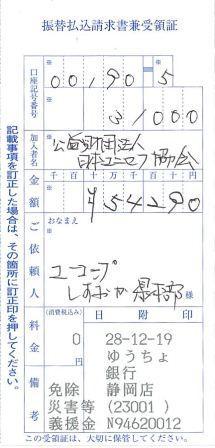 振替払込請求書兼受領証
口座記号番号
00190 5
31000
加入者名
公益財団法人
日本ユニセフ協会
金額
千百十万千百十円
¥54290
ご依頼人
おなまえ
ユーコープ
しずおか県本部 様
料金
(消費税込み)
0
円
日附印
28-12-19
ゆうちょ
銀行
静岡店
(23001 )
N94620012
備考
免除
災害等
義援金
この受領証は、大切に保管してください。
記載事項を訂正した場合は、その箇所に訂正印を押してください。